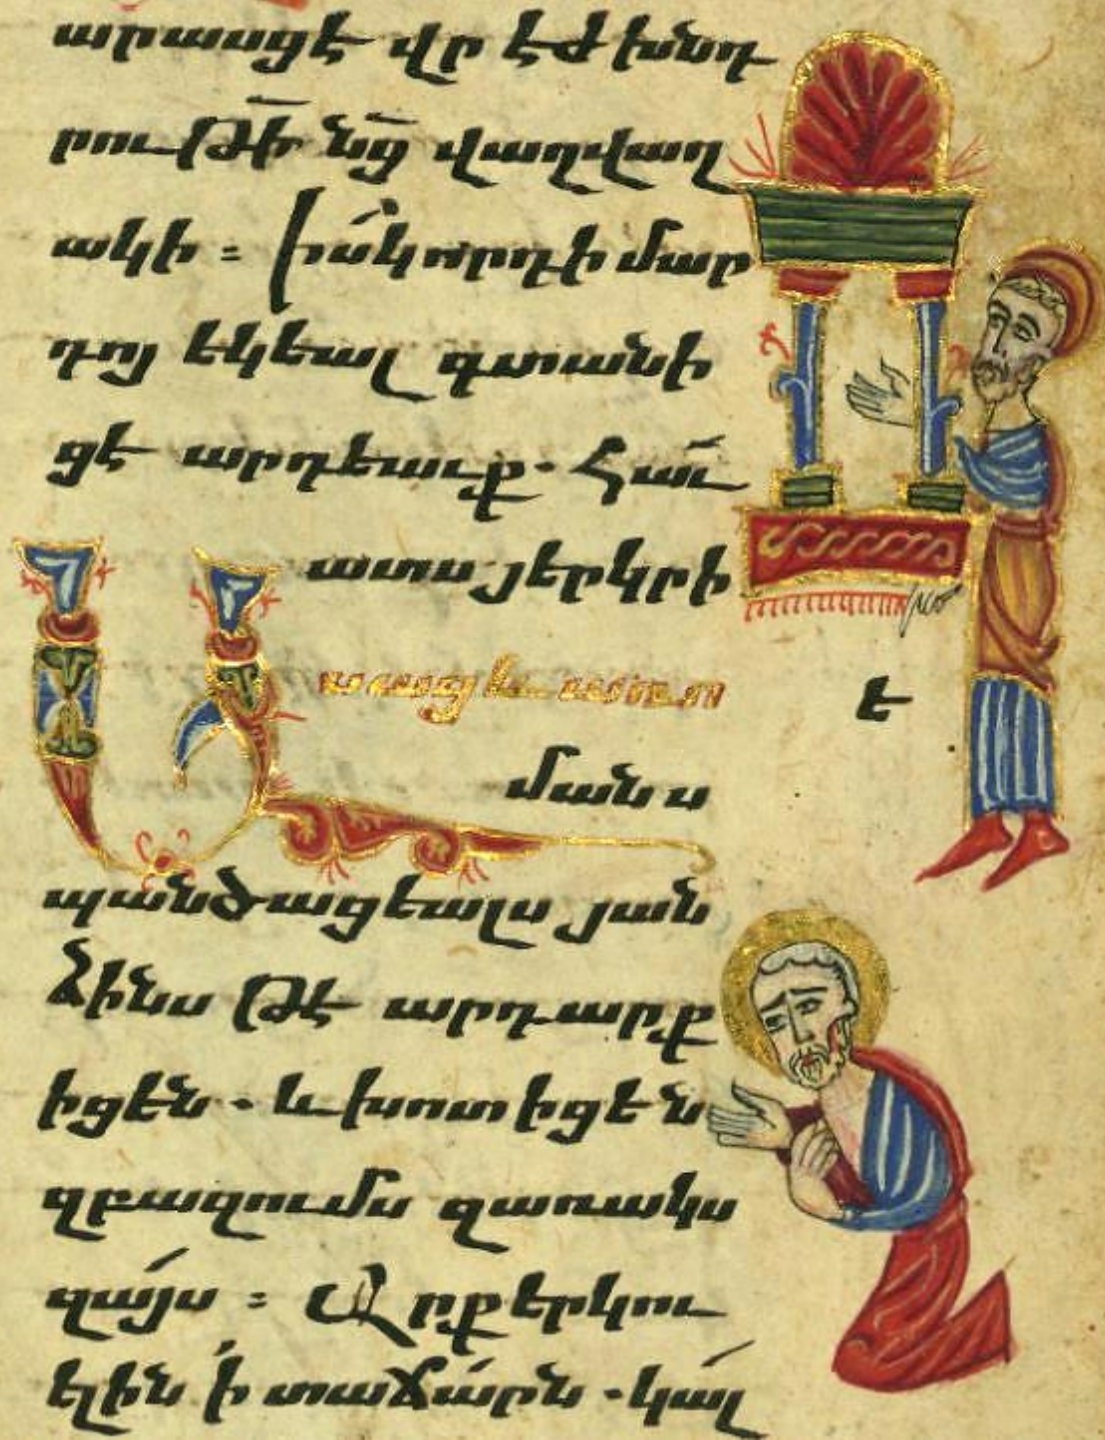 արասցէ վրէժխնդ
րութի՟ ն՟ց վաղվաղ
ակի ։ Իսկ որդի մար
դոյ եկեալ գտանի
ցէ արդեաւք․ Հաւ
ատս յերկրի
Ասաց և առ ո
մանս
ե
պանծացեալս յան
ձինս թէ արդարք
իցեն ․ և խոտիցեն
զբազումս զառակս
զայս ։ Արք երկու
ելին ի տաճարն ․ կալ